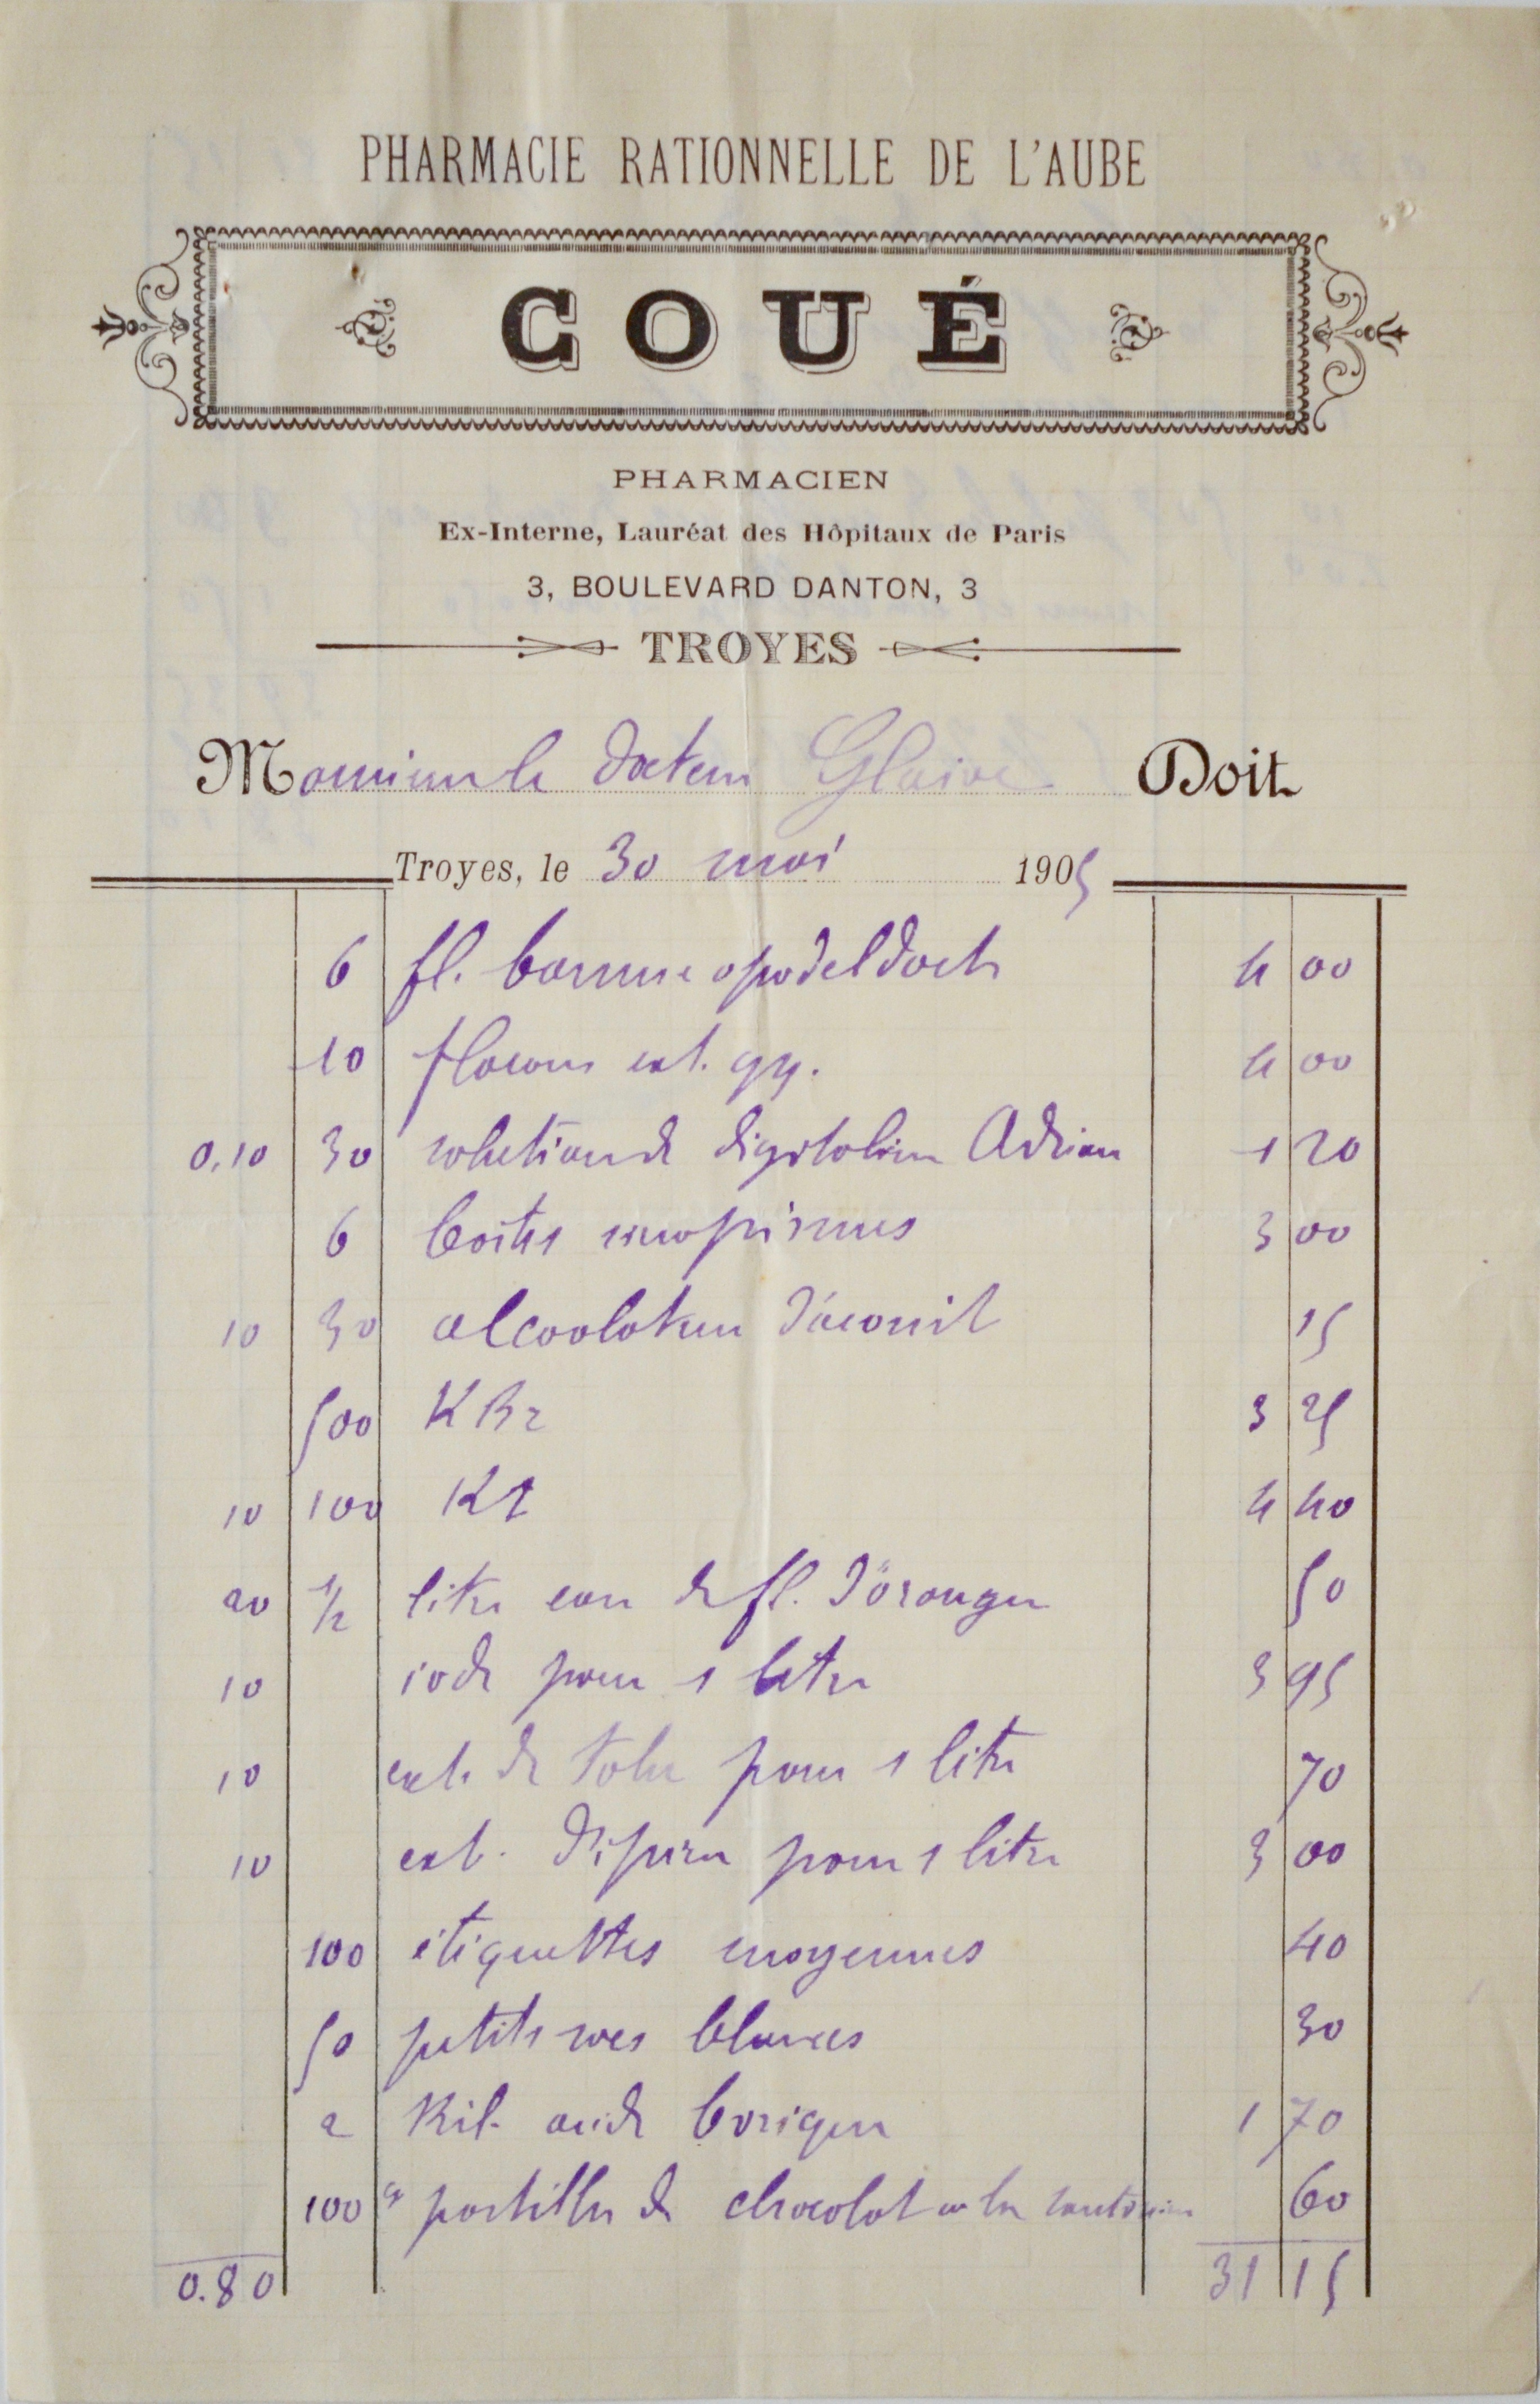 PHARMACIE RATIONNELLE DE L'AUBE
COUÉ
PHARMACIEN
Ex-Interne, Lauréat des Hôpitaux de Paris
3, BOULEVARD DANTON, 3
TROYES
Monsieur le docteur Glaive Doit
Troyes, le 30 mai 1905
6 fl. baume opodeldoch 4 00
10 flacons ext. gg. 4 00
0,10 30 solution de digitaline Adrian 1 20
6 boites sinapismes 3 00
10 30 alcoolature d'aconit 15
500 KBr 3 25
10 100 KI 4 40
20 1/2 litre eau de fl. d'oranger 50
10 iode pour 1 litre 3 95
10 ext. de tolu pour 1 litre 70
10 ext. d'ipeca pour 1 litre 3 00
100 étiquettes moyennes 40
50 petits sacs blancs 30
2 Kil. acide borique 1 70
100 gr pastilles de chocolat à la santonine 60
0.80 31 15